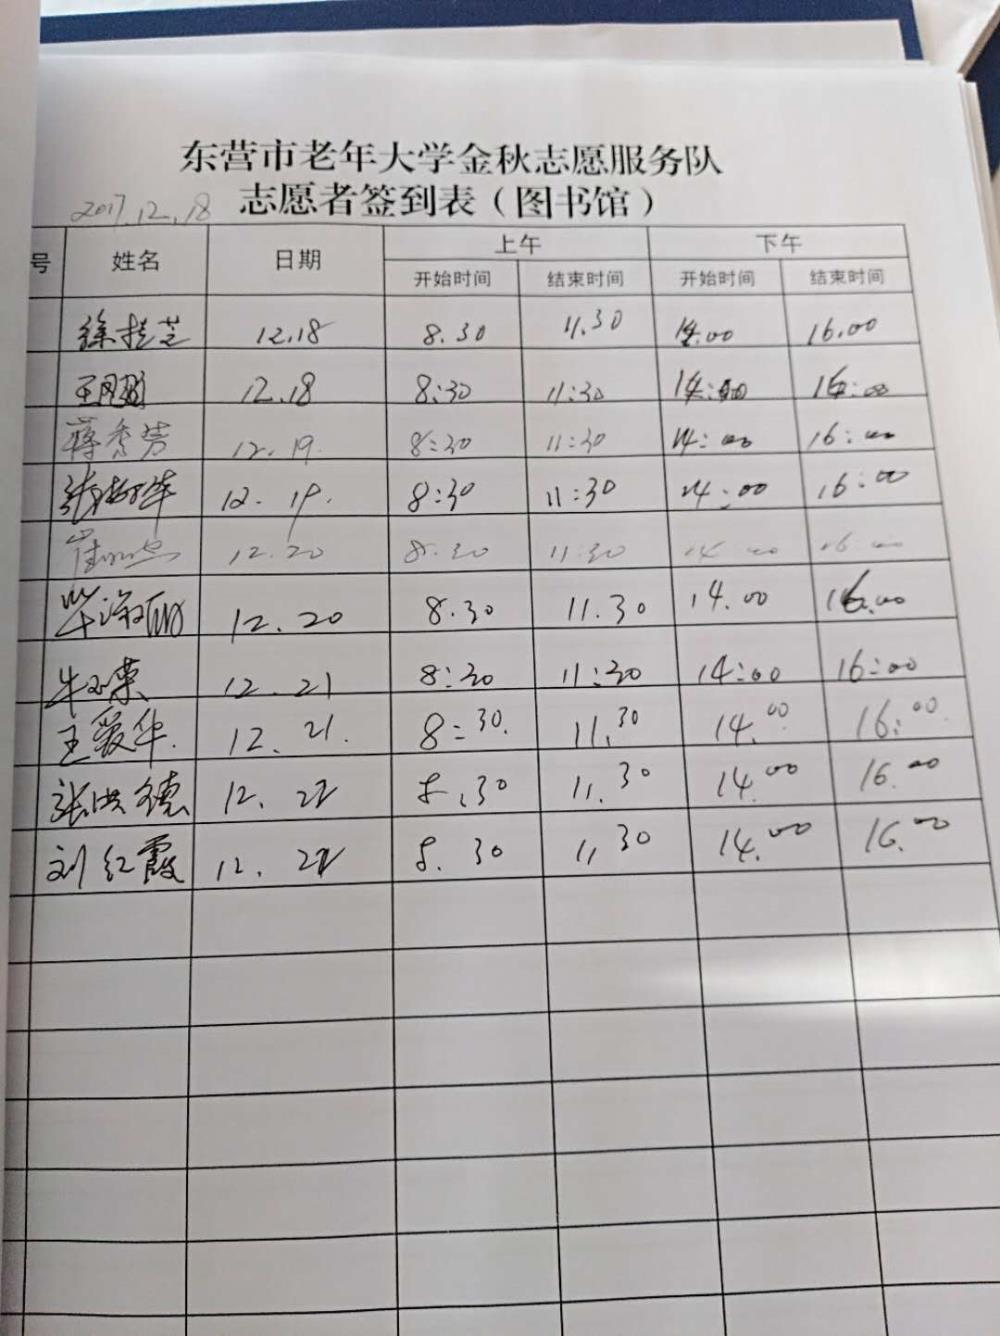 东营市老年大学金秋志愿服务队
2017.12.18 志愿者签到表（图书馆）
号 姓名 日期 上午 下午
开始时间 结束时间 开始时间 结束时间
徐桂芝 12.18 8.30 11.30 14.00 16.00
12.18 8:30 11:30 14:00 16:00
蒋秀芳 12.19. 8:30 11:30 14:00 16:00
12.19. 8:30 11:30 14:00 16:00
12.20 8.30 11:30 14 00 16 00
12.20 8.30 11.30 14.00 16.00
牛玉荣 12.21 8:30 11:30 14:00 16:00
王爱华. 12.21. 8:30. 11.30 14.00 16.00.
张洪德 12. 8.30 11.30 14.00 16.00
刘红霞 12. 8.30 11.30 14.00 16.00